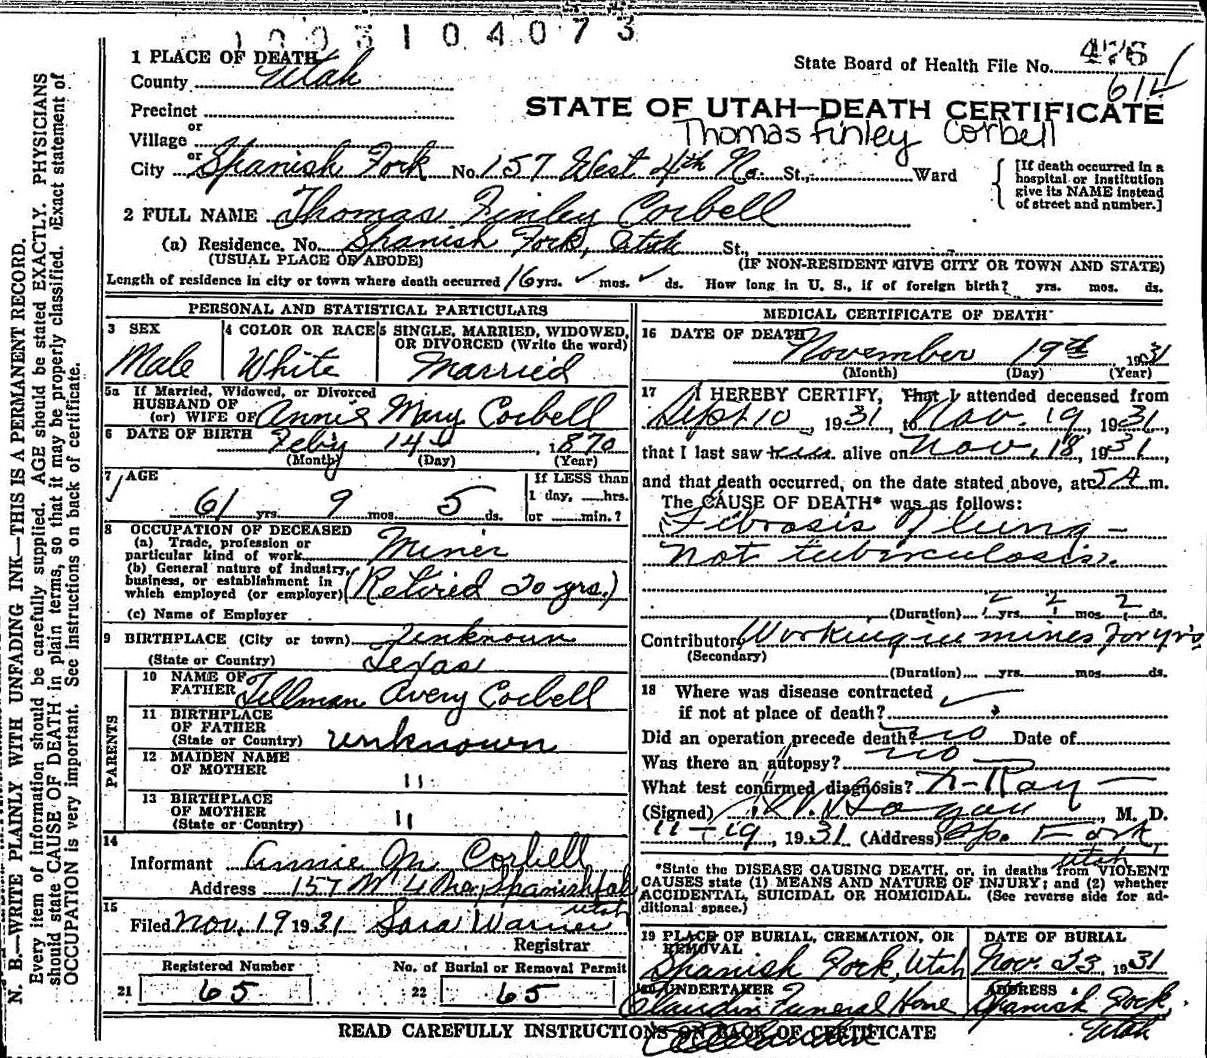 1003104073
1 PLACE OF DEATH
County Utah
State Board of Health File No. 476
611
Precinct
STATE OF UTAH—DEATH CERTIFICATE
Thomas Finley Corbell
or
Village
or
City Spanish Fork No. 157 West 4th No. St., Ward
[If death occurred in a hospital or institution give its NAME instead of street and number.]
2 FULL NAME Thomas Finley Corbell
(a) Residence, No. Spanish Fork, Utah St.,
(USUAL PLACE OF ABODE) (IF NON-RESIDENT GIVE CITY OR TOWN AND STATE)
Length of residence in city or town where death occurred 16 yrs. ✓ mos. ✓ ds. How long in U. S., if of foreign birth? yrs. mos. ds.
PERSONAL AND STATISTICAL PARTICULARS
3 SEX
Male
4 COLOR OR RACE
White
5 SINGLE, MARRIED, WIDOWED, OR DIVORCED (Write the word)
Married
5a If Married, Widowed, or Divorced
HUSBAND OF
(or) WIFE OF Annie Mary Corbell
6 DATE OF BIRTH Feby 14 1870
(Month) (Day) (Year)
7 AGE
61 yrs. 9 mos. 5 ds.
If LESS than
1 day, hrs.
or min.?
8 OCCUPATION OF DECEASED
(a) Trade, profession or
particular kind of work Miner
(b) General nature of industry,
business, or establishment in
which employed (or employer) (Retired 20 yrs.)
(c) Name of Employer
9 BIRTHPLACE (City or town) Unknown
(State or Country) Texas
PARENTS
10 NAME OF
FATHER Tillman Avery Corbell
11 BIRTHPLACE
OF FATHER
(State or Country) Unknown
12 MAIDEN NAME
OF MOTHER "
13 BIRTHPLACE
OF MOTHER
(State or Country) "
14
Informant Annie M Corbell
Address 157 W 4 No, Spanish Fork
Utah
15
Filed Nov. 19 1931 Sara Warner
Registrar
Registered Number
21 65
No. of Burial or Removal Permit
22 65
MEDICAL CERTIFICATE OF DEATH
16 DATE OF DEATH November 19th 1931
(Month) (Day) (Year)
17 I HEREBY CERTIFY, That I attended deceased from
Sept 10, 1931, to Nov. 19, 1931,
that I last saw him alive on Nov. 18, 1931,
and that death occurred, on the date stated above, at 5 A m.
The CAUSE OF DEATH* was as follows:
Fibrosis of lung -
not tuberculosis.
(Duration) yrs. 2 mos. 2 ds.
Contributory Working in mines for yrs.
(Secondary)
(Duration) yrs. mos. ds.
18 Where was disease contracted
if not at place of death? ✓
Did an operation precede death? no Date of
Was there an autopsy? no
What test confirmed diagnosis? X-Ray
(Signed) Hagan M. D.
11-19, 1931 (Address) Sp. Fork,
Utah
*State the DISEASE CAUSING DEATH, or, in deaths from VIOLENT
CAUSES state (1) MEANS AND NATURE OF INJURY; and (2) whether
ACCIDENTAL, SUICIDAL OR HOMICIDAL. (See reverse side for ad-
ditional space.)
19 PLACE OF BURIAL, CREMATION, OR
REMOVAL
Spanish Fork, Utah
DATE OF BURIAL
Nov. 23, 1931
20 UNDERTAKER
Claudin Funeral Home
ADDRESS
Spanish Fork,
Utah
READ CAREFULLY INSTRUCTIONS ON BACK OF CERTIFICATE
N. B.—WRITE PLAINLY WITH UNFADING INK—THIS IS A PERMANENT RECORD.
Every item of information should be carefully supplied. AGE should be stated EXACTLY. PHYSICIANS
should state CAUSE OF DEATH in plain terms, so that it may be properly classified. Exact statement of
OCCUPATION is very important. See instructions on back of certificate.